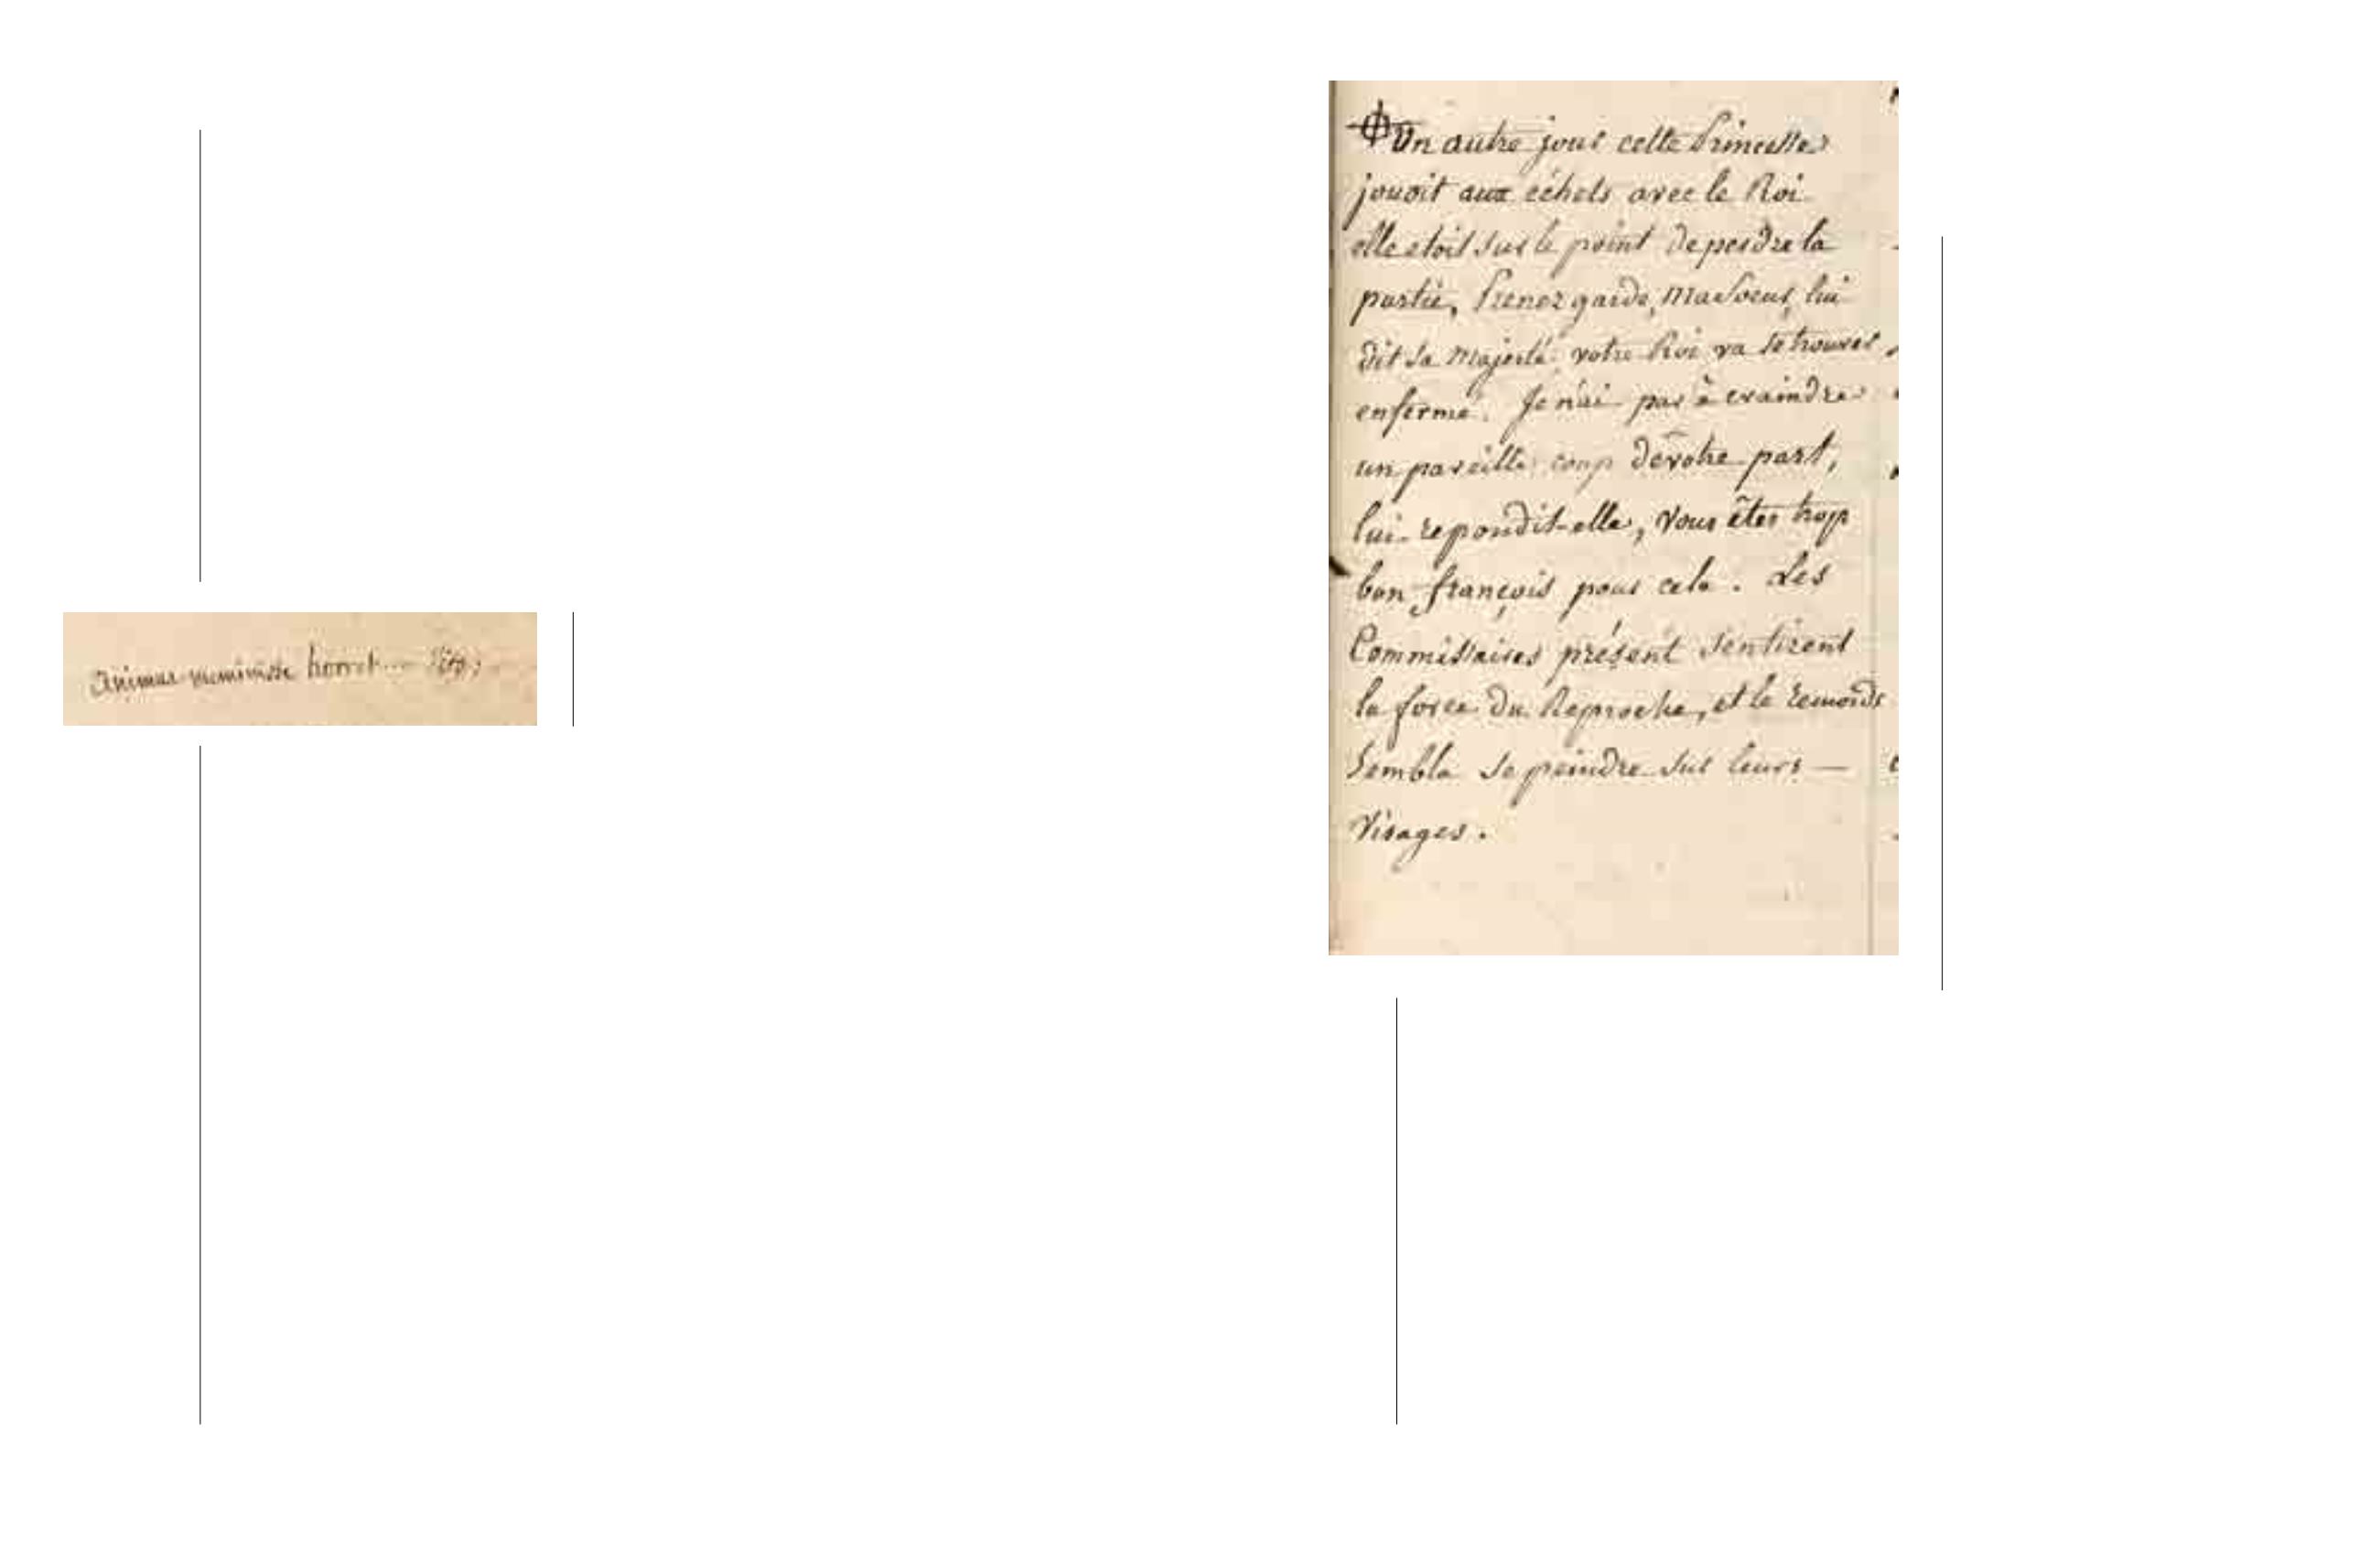 animus meminisse horret .... Virg;
Un autre jour cette Princesse
jouoit aux échets avec le Roi
elle etoit sur le point de perdre la
partie, Prenez garde, ma Soeur, lui
dit sa Majesté, votre Roi va se trouver
enfermé. Je n'ai pas à craindre
un pareille coup de votre part,
lui repondit-elle, vous êtes trop
bon françois pour cela. Les
Commissaires présent sentirent
la force du Reproche, et le remords
Sembla se peindre sur leurs —
visages.